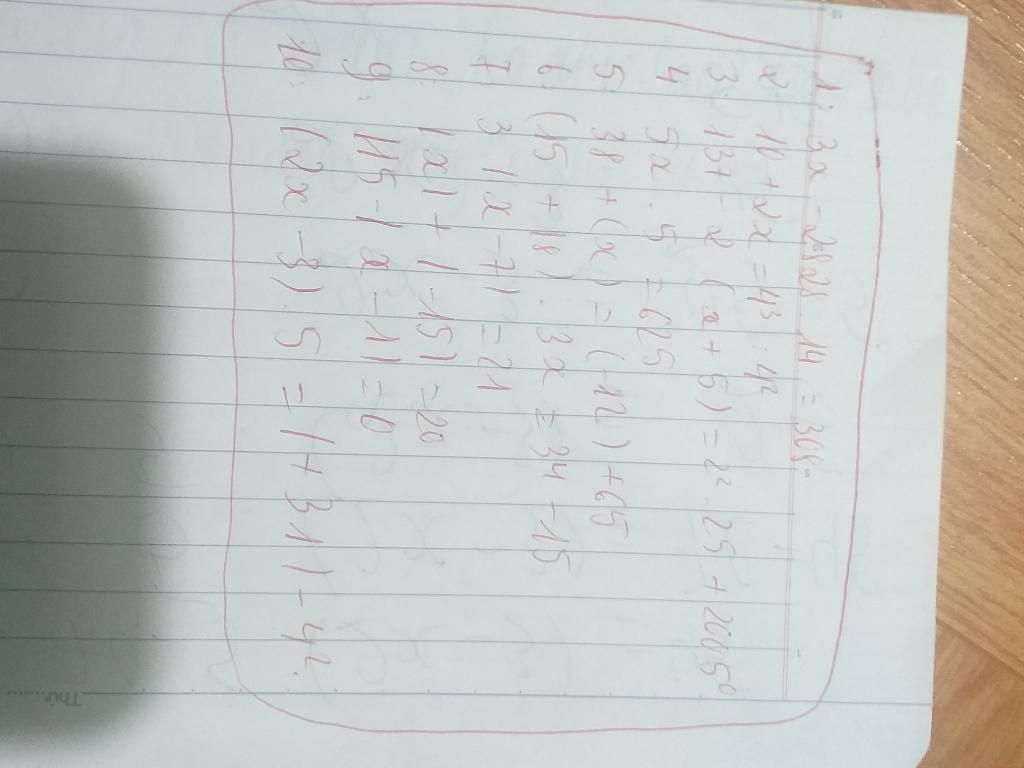 1: 3x - 2828 : 14 = 308
2: 10 + 2x = 4³ : 4²
3: 137 - 2 (x + 5) = 2². 25 + 2005⁰
4: 5x . 5 = 625
5: 38 + (x) = (-12) + 65
6: (15 + 18) : 3x = 34 - 15
7: 3 | x - 7| = 21
8: |x| + | -15| = 20
9: |15 - | x - 1| = 0
10: (2x - 3). 5 = | + 31 | - 4².
Thứ